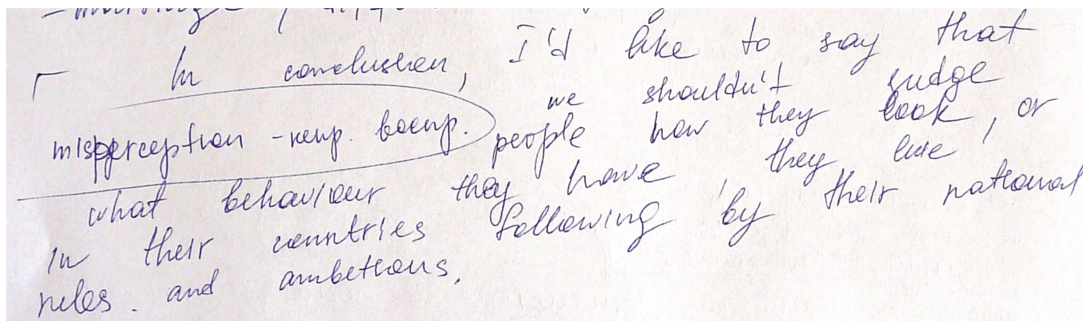 In conclusion, I'd like to say that
we shouldn't judge
misperception - непр. воспр.
people how they look, or
what behaviour they have, they live,
in their countries following by their national
rules. and ambetions.